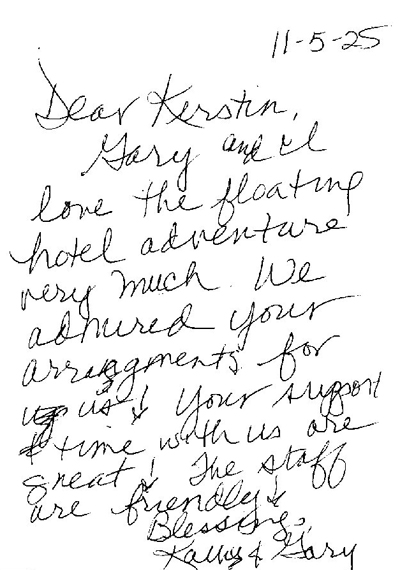 11-5-25
Dear Kerstin,
Gary and I
love the floating
hotel adventure
very much. We
admired your
arrangments for
us! Your support
& time with us are
great! The staff
are friendly!
Blessings,
& Gary